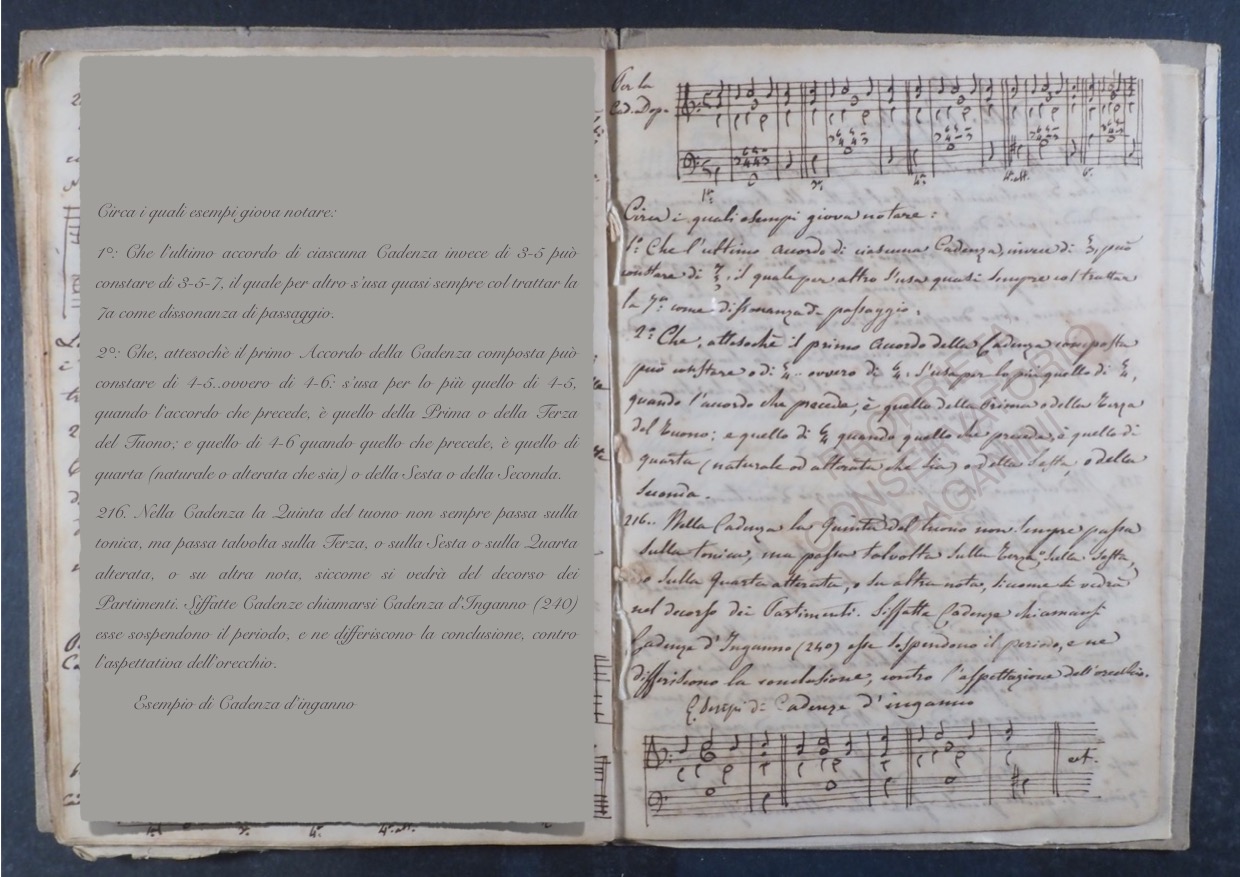 Circa i quali esempi giova notare:
1°: Che l'ultimo accordo di ciascuna Cadenza invece di 3-5 può
constare di 3-5-7, il quale per altro s'usa quasi sempre col trattar la
7a come dissonanza di passaggio.
2°: Che, attesochè il primo Accordo della Cadenza composta può
constare di 4-5..ovvero di 4-6: s'usa per lo più quello di 4-5,
quando l'accordo che precede, è quello della Prima o della Terza
del Tuono; e quello di 4-6 quando quello che precede, è quello di
quarta (naturale o alterata che sia) o della Sesta o della Seconda.
216. Nella Cadenza la Quinta del tuono non sempre passa sulla
tonica, ma passa talvolta sulla Terza, o sulla Sesta o sulla Quarta
alterata, o su altra nota, siccome si vedrà del decorso dei
Partimenti. Siffatte Cadenze chiamarsi Cadenza d'Inganno (240)
esse sospendono il periodo, e ne differiscono la conclusione, contro
l'aspettativa dell'orecchio.
Esempio di Cadenza d'inganno
Per la
Cad. Dop.
1ª 3ª 4ª 4ª alt. 6ª
Circa i quali esempi giova notare:
1°: Che l'ultimo accordo di ciascuna Cadenza, invece di 5/3, può
constare di 7/5/3, il quale per altro s'usa quasi sempre col trattar
la 7ª come dissonanza di passaggio.
2° Che, attesochè il primo Accordo della Cadenza composta
può constare o di 5/4.. ovvero di 6/4: s'usa per lo più quello di 5/4,
quando l'accordo che precede, è quello della Prima o della Terza
del Tuono; e quello di 6/4 quando quello che precede, è quello di
quarta (naturale od alterata che sia) o della Sesta, o della
Seconda.
216.. Nella Cadenza la Quinta del tuono non sempre passa
sulla tonica, ma passa talvolta sulla Terza, o sulla Sesta,
o sulla Quarta alterata, o su altra nota, siccome si vedrà
nel decorso dei Partimenti. Siffatte Cadenze chiamansi
Cadenze d'Inganno (240) esse sospendono il periodo, e ne
differiscono la conclusione, contro l'aspettazione dell'orecchio.
Esempi di Cadenze d'inganno
ect.
PROPRIETÀ
CONSERVATORIO
PAGANINI
3ª 4ª 4ª alt.